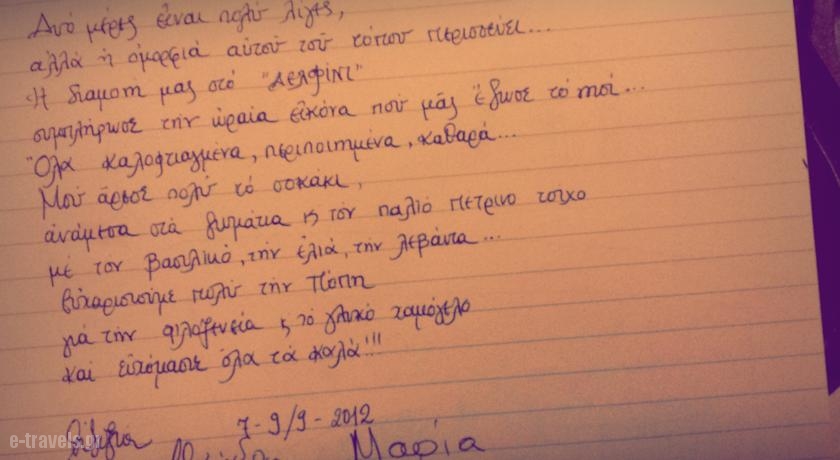 Δυό μέρες εἶναι πολύ λίγες,
ἀλλά ἡ ὀμορφιά αὐτοῦ τοῦ τόπου περισσεύει...
Ἡ διαμονή μας στό "ΔΕΛΦΙΝΙ"
συμπλήρωσε τήν ὡραία εἰκόνα πού μᾶς ἔδωσε τό νησί...
Ὅλα καλοφτιαγμένα, περιποιημένα, καθαρά...
Μοῦ ἄρεσε πολύ τό σοκάκι,
ἀνάμεσα στά δωμάτια ϗ τόν παλιό πέτρινο τοῖχο
μέ τόν βασιλικό, τήν ἐλιά, τήν λεβάντα...
Εὐχαριστοῦμε πολύ τήν Πόπη
γιά τήν φιλοξενεία ϗ τό γλυκό χαμόγελο
καί εὐχόμαστε ὅλα τά καλά!!!
7-9/9-2012
Μαρία
e-travels.gr